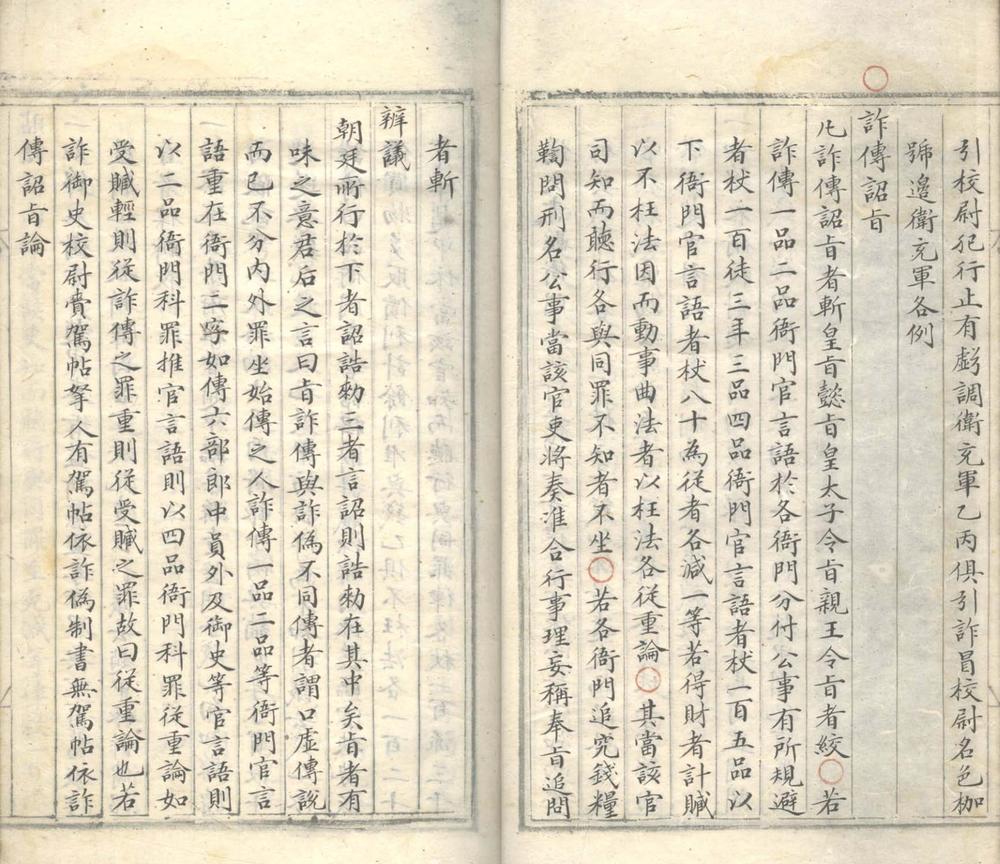 引校尉犯行止有虧調衛充軍乙丙俱引詐冒校尉名色枷
號邊衛充軍各例
詐傳詔旨
凡詐傳詔旨者斬皇旨懿旨皇太子令旨親王令旨者絞○若
詐傳一品二品衙門官言語於各衙門分付公事有所規避
者杖一百徒三年三品四品衙門官言語者杖一百五品以
下衙門官言語者杖八十為從者各減一等若得財者計贓
以不枉法因而動事曲法者以枉法各從重論○其當該官
司知而聽行各與同罪不知者不坐○若各衙門追究錢糧
鞫問刑名公事當該官吏將奏准合行事理妄稱奉旨追問
者斬
辨議
朝廷所行於下者詔誥勑三者言詔則誥勑在其中矣旨者有
味之意君后之言曰旨詐傳與詐偽不同傳者謂口虛傳說
而已不分內外罪坐始傳之人詐傳一品二品等衙門官言
語重在衙門二字如傳六部郎中員外及御史等官言語則
以二品衙門科罪推官言語則以四品衙門科罪從重論如
受贓輕則從詐傳之罪重則從受贓之罪故曰從重論也若
詐御史校尉賫駕帖拏人有駕帖依詐偽制書無駕帖依詐
傳詔旨論